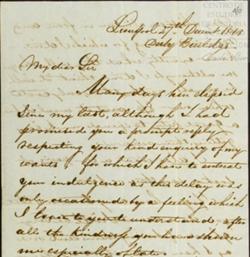 My dear Sir
Many days have elapsed
since my last, although I had
promised you a prompt reply
respecting your kind enquiry of my
wants for which I have to entreat
your indulgence as this delay was
only occasioned by a feeling which
I leave to you to understand, after
all the kindness you have shewn
me especially of late